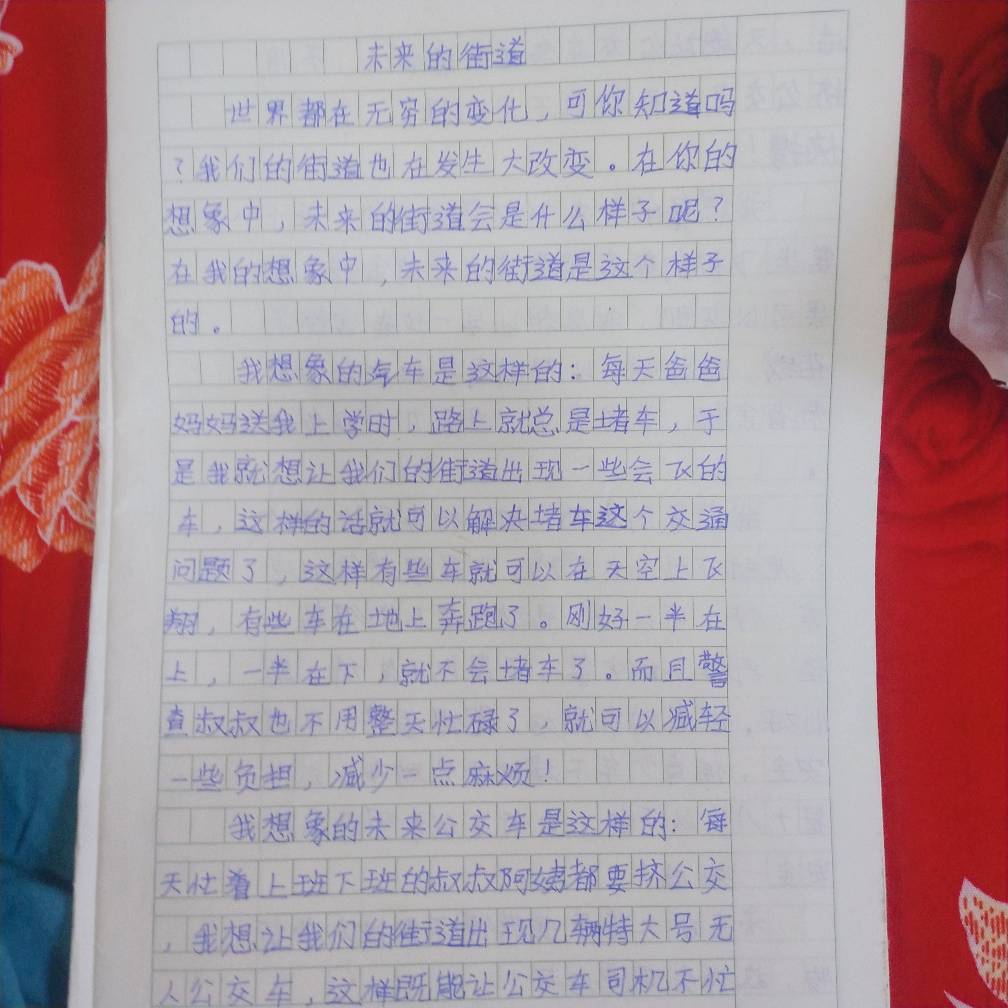 未来的街道
世界都在无穷的变化，可你知道吗
？我们的街道也在发生大改变。在你的
想象中，未来的街道会是什么样子呢？
在我的想象中，未来的街道是这个样子
的。
我想象的汽车是这样的：每天爸爸
妈妈送我上学时，路上就总是堵车，于
是我就想让我们的街道出现一些会飞的
车，这样的话就可以解决堵车这个交通
问题了，这样有些车就可以在天空上飞
翔，有些车在地上奔跑了。刚好一半在
上，一半在下，就不会堵车了。而且警
查叔叔也不用整天忙碌了，就可以减轻
一些负担，减少一点麻烦！
我想象的未来公交车是这样的：每
天忙着上班下班的叔叔阿姨都要挤公交
，我想让我们的街道出现几辆特大号无
人公交车，这样既能让公交车司机不忙